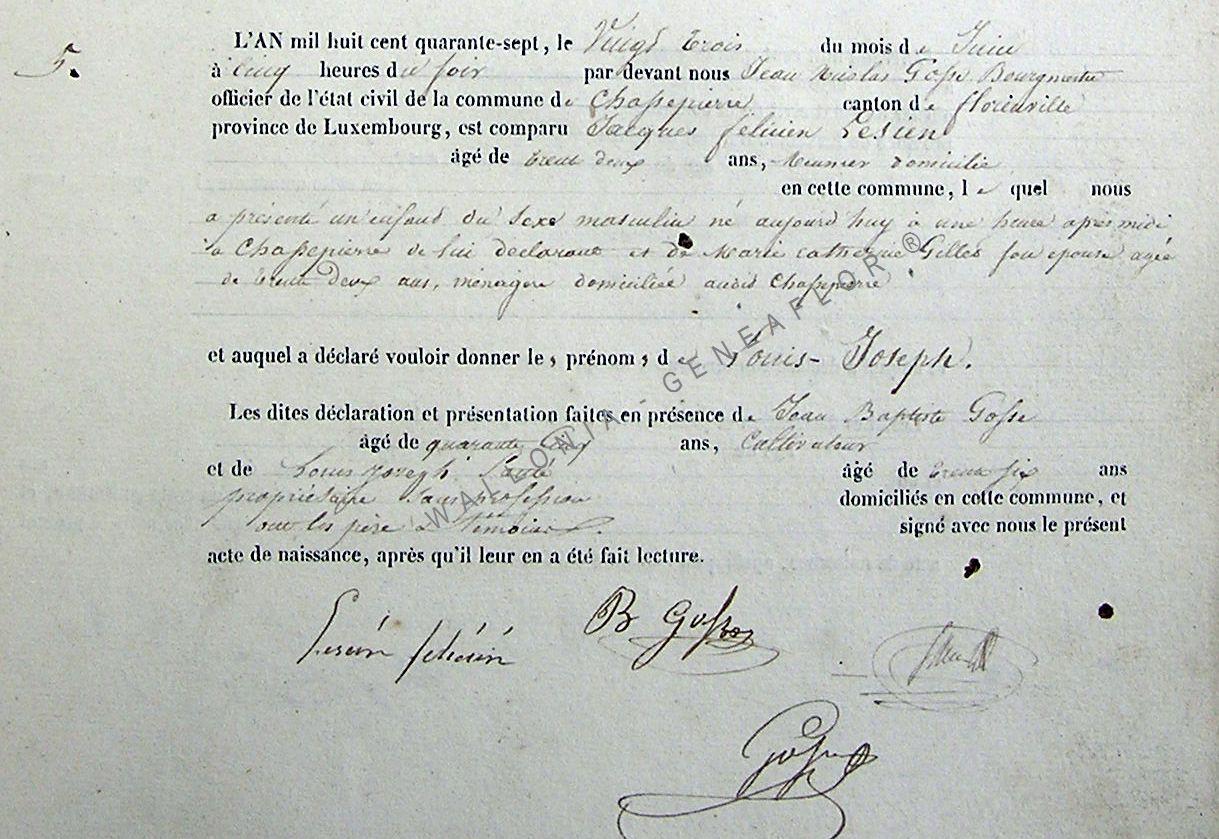 5.
L'AN mil huit cent quarante-sept, le Vingt trois du mois de Juin
à Cinq heures du soir par devant nous Jean Nicolas Gosse Bourgmestre
officier de l'état civil de la commune de Chassepierre canton de florenville
province de Luxembourg, est comparu Jacques félicien Lesien
âgé de trent deux ans, Meunier domicilié
en cette commune, le quel nous
a présenté un enfand du sexe masculin né aujourd huy à une heure après midi
à Chassepierre de lui déclarant et de Marie Catherine Gilles son épouse agée
de trente deux ans, ménagere domiciliée audit Chassepierre
et auquel a déclaré vouloir donner les prénoms de Louis-Joseph.
Les dites déclaration et présentation faites en présence de Jean Baptiste Gosse
âgé de quarante cinq ans, Cultivateur
et de Louis Joseph âgé de trente six ans
propriétaire sans profession domiciliés en cette commune, et
ont les père et témoins signé avec nous le présent
acte de naissance, après qu'il leur en a été fait lecture.
Lesien félicien
B Gosse
Gosse
WALLONIA GENEAFLOR ®